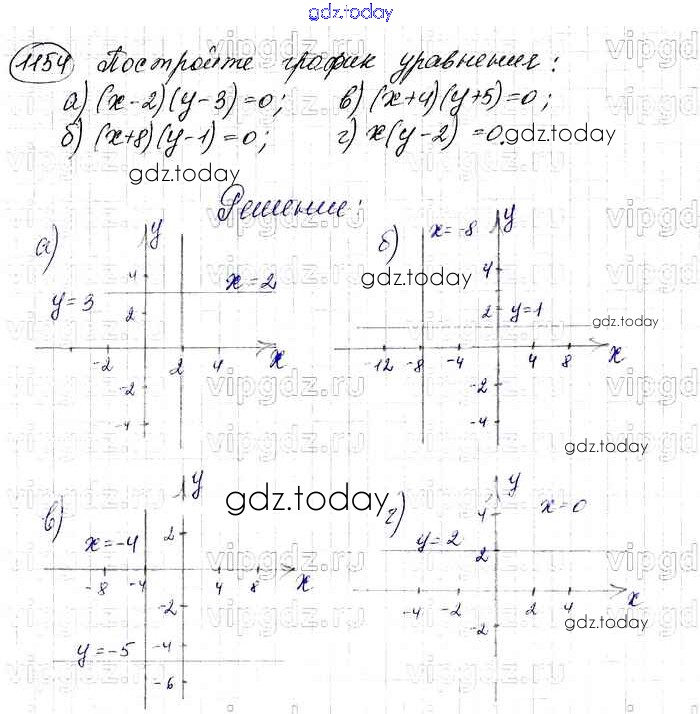 gdz.today
1154 Постройте график уравнения:
а) (x-2)(y-3)=0; в) (x+4)(y+5)=0;
б) (x+8)(y-1)=0; г) x(y-2)=0.
gdz.today
gdz.today
Решение:
а) y б) x=-8 y
y=3 4 x=2 4 gdz.today
2 2 y=1 gdz.today
-2 2 4 x -12 -8 -4 4 8 x
-2 -2
-4 -4 gdz.today
в) y gdz.today г) y
x=-4 2 y=2 4 x=0
-8 -4 4 8 x 2
-2 -4 -2 2 4 x
y=-5 -4 -2 gdz.today
-6
vipgdz.ru vipgdz.ru vipgdz.ru
vipgdz.ru vipgdz.ru vipgdz.ru
vipgdz.ru vipgdz.ru vipgdz.ru